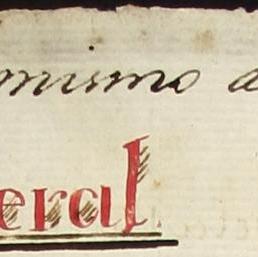 mismo a
eral.